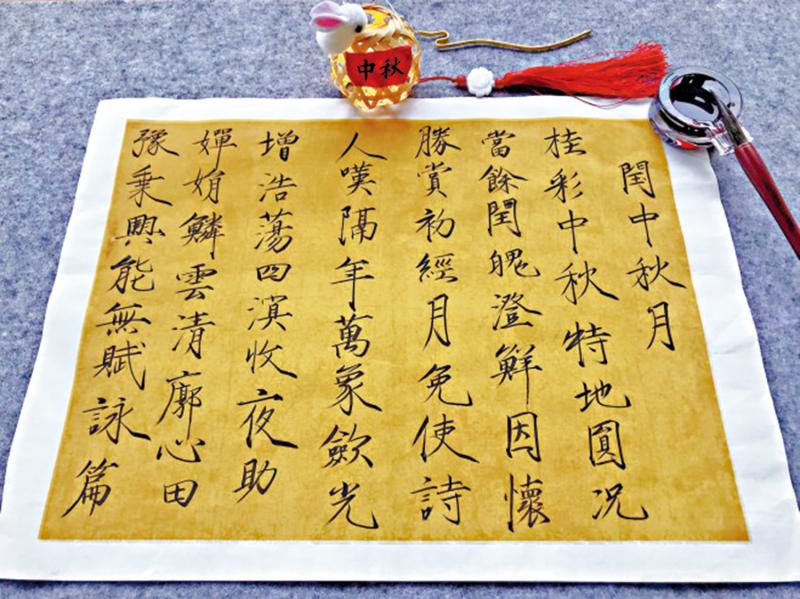 中秋
閏中秋月
桂彩中秋特地圓況
當餘閏魄澄鮮因懷
勝賞初經月免使詩
人嘆隔年萬象歛光
增浩蕩四溟收夜助
嬋娟鱗雲清廓心田
豫乘興能無賦詠篇